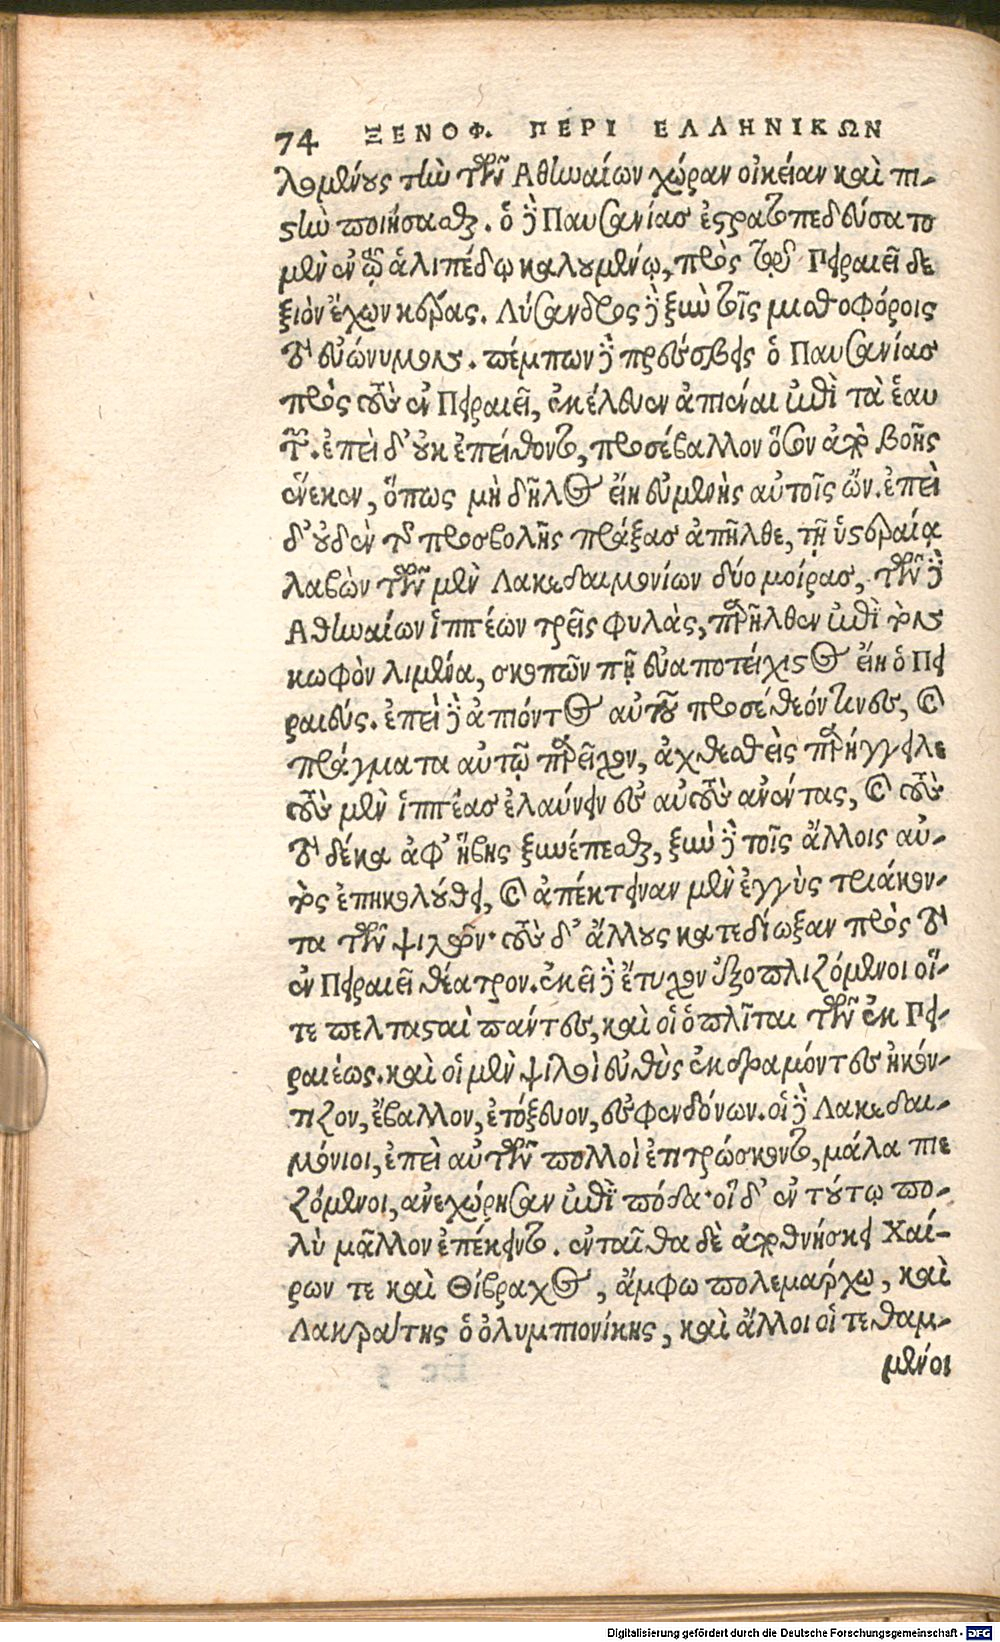 74 ΞΕΝΟΦ. ΠΕΡΙ ΕΛΛΗΝΙΚΩΝ
λομένους τὴν τῶν Αθηναίων χώραν οἰκείαν καὶ πι-
στὴν ποιήσασθαι. ὁ δὲ Παυσανίας ἐστρατοπεδεύσατο
μὲν ἐν τῷ ἁλιπέδῳ καλουμένῳ, πρὸς τῷ Πειραιεῖ δε
ξιὸν ἔχων κέρας. Λύσανδρος δὲ ξὺν τοῖς μισθοφόροις
τὸ εὐώνυμον. πέμπων δὲ πρέσβεις ὁ Παυσανίας
πρὸς τοὺς ἐν Πειραιεῖ, ἐκέλευεν ἀπιέναι ἐπὶ τὰ ἑαυ
τῶν. ἐπεὶ δ' οὐκ ἐπείθοντο, προσέβαλλον ὅσον ἀπὸ βοῆς
ἕνεκεν, ὅπως μὴ δῆλος εἴη εὐμενὴς αὐτοῖς ὤν. ἐπεὶ
δ' οὐδὲν τῆς προσβολῆς πράξας ἀπῆλθε, τῇ ὑστεραίᾳ
λαβὼν τῶν μὲν Λακεδαιμονίων δύο μοίρας, τῶν δὲ
Αθηναίων ἱππέων τρεῖς φυλὰς, παρῆλθεν ἐπὶ τὸν
κωφὸν λιμένα, σκοπῶν πῇ εὐαποτείχιστος εἴη ὁ Πει
ραιεύς. ἐπεὶ δὲ ἀπιόντος αὐτοῦ προσέθεόν τινες, καὶ
πράγματα αὐτῷ παρεῖχον, ἀχθεσθεὶς παρήγγειλε
τοὺς μὲν ἱππέας ἐλαύνειν ἐς αὐτοὺς ἀνέντας, καὶ τοὺς
τὸ δέκα ἀφ' ἥβης ξυνέπεσθαι, ξὺν δὲ τοῖς ἄλλοις αὐ-
τὸς ἐπηκολούθει, καὶ ἀπέκτειναν μὲν ἐγγὺς τριάκον-
τα τῶν ψιλῶν· τοὺς δ' ἄλλους κατεδίωξαν πρὸς τὸ
ἐν Πειραιεῖ θέατρον. ἐκεῖ δὲ ἔτυχον ἐξοπλιζόμενοι οἵ-
τε πελτασταὶ πάντες, καὶ οἱ ὁπλῖται τῶν ἐκ Πει-
ραιέως. καὶ οἱ μὲν ψιλοὶ εὐθὺς ἐκδραμόντες ἠκόν-
τιζον, ἔβαλλον, ἐτόξευον, ἐσφενδόνων. οἱ δὲ Λακεδαι-
μόνιοι, ἐπεὶ αὐτῶν πολλοὶ ἐτιτρώσκοντο, μάλα πιε
ζόμενοι, ἀνεχώρησαν ἐπὶ πόδα· οἱ δ' ἐν τούτῳ πο-
λὺ μᾶλλον ἐπέκειντο. ἐνταῦθα δὲ ἀποθνήσκει Χαί-
ρων τε καὶ Θίβραχος, ἄμφω πολεμάρχω, καὶ
Λακράτης ὁ ὀλυμπιονίκης, καὶ ἄλλοι οἱ τεθαμ-
μένοι
Digitalisierung gefördert durch die Deutsche Forschungsgemeinschaft - DFG